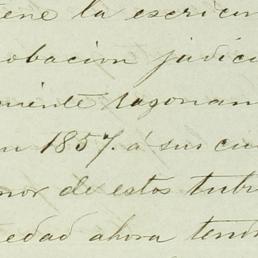 tiene la escritur
obacion judici
mente razonam
en 1857. á sus ciu
nor de estos tute
edad ahora tend